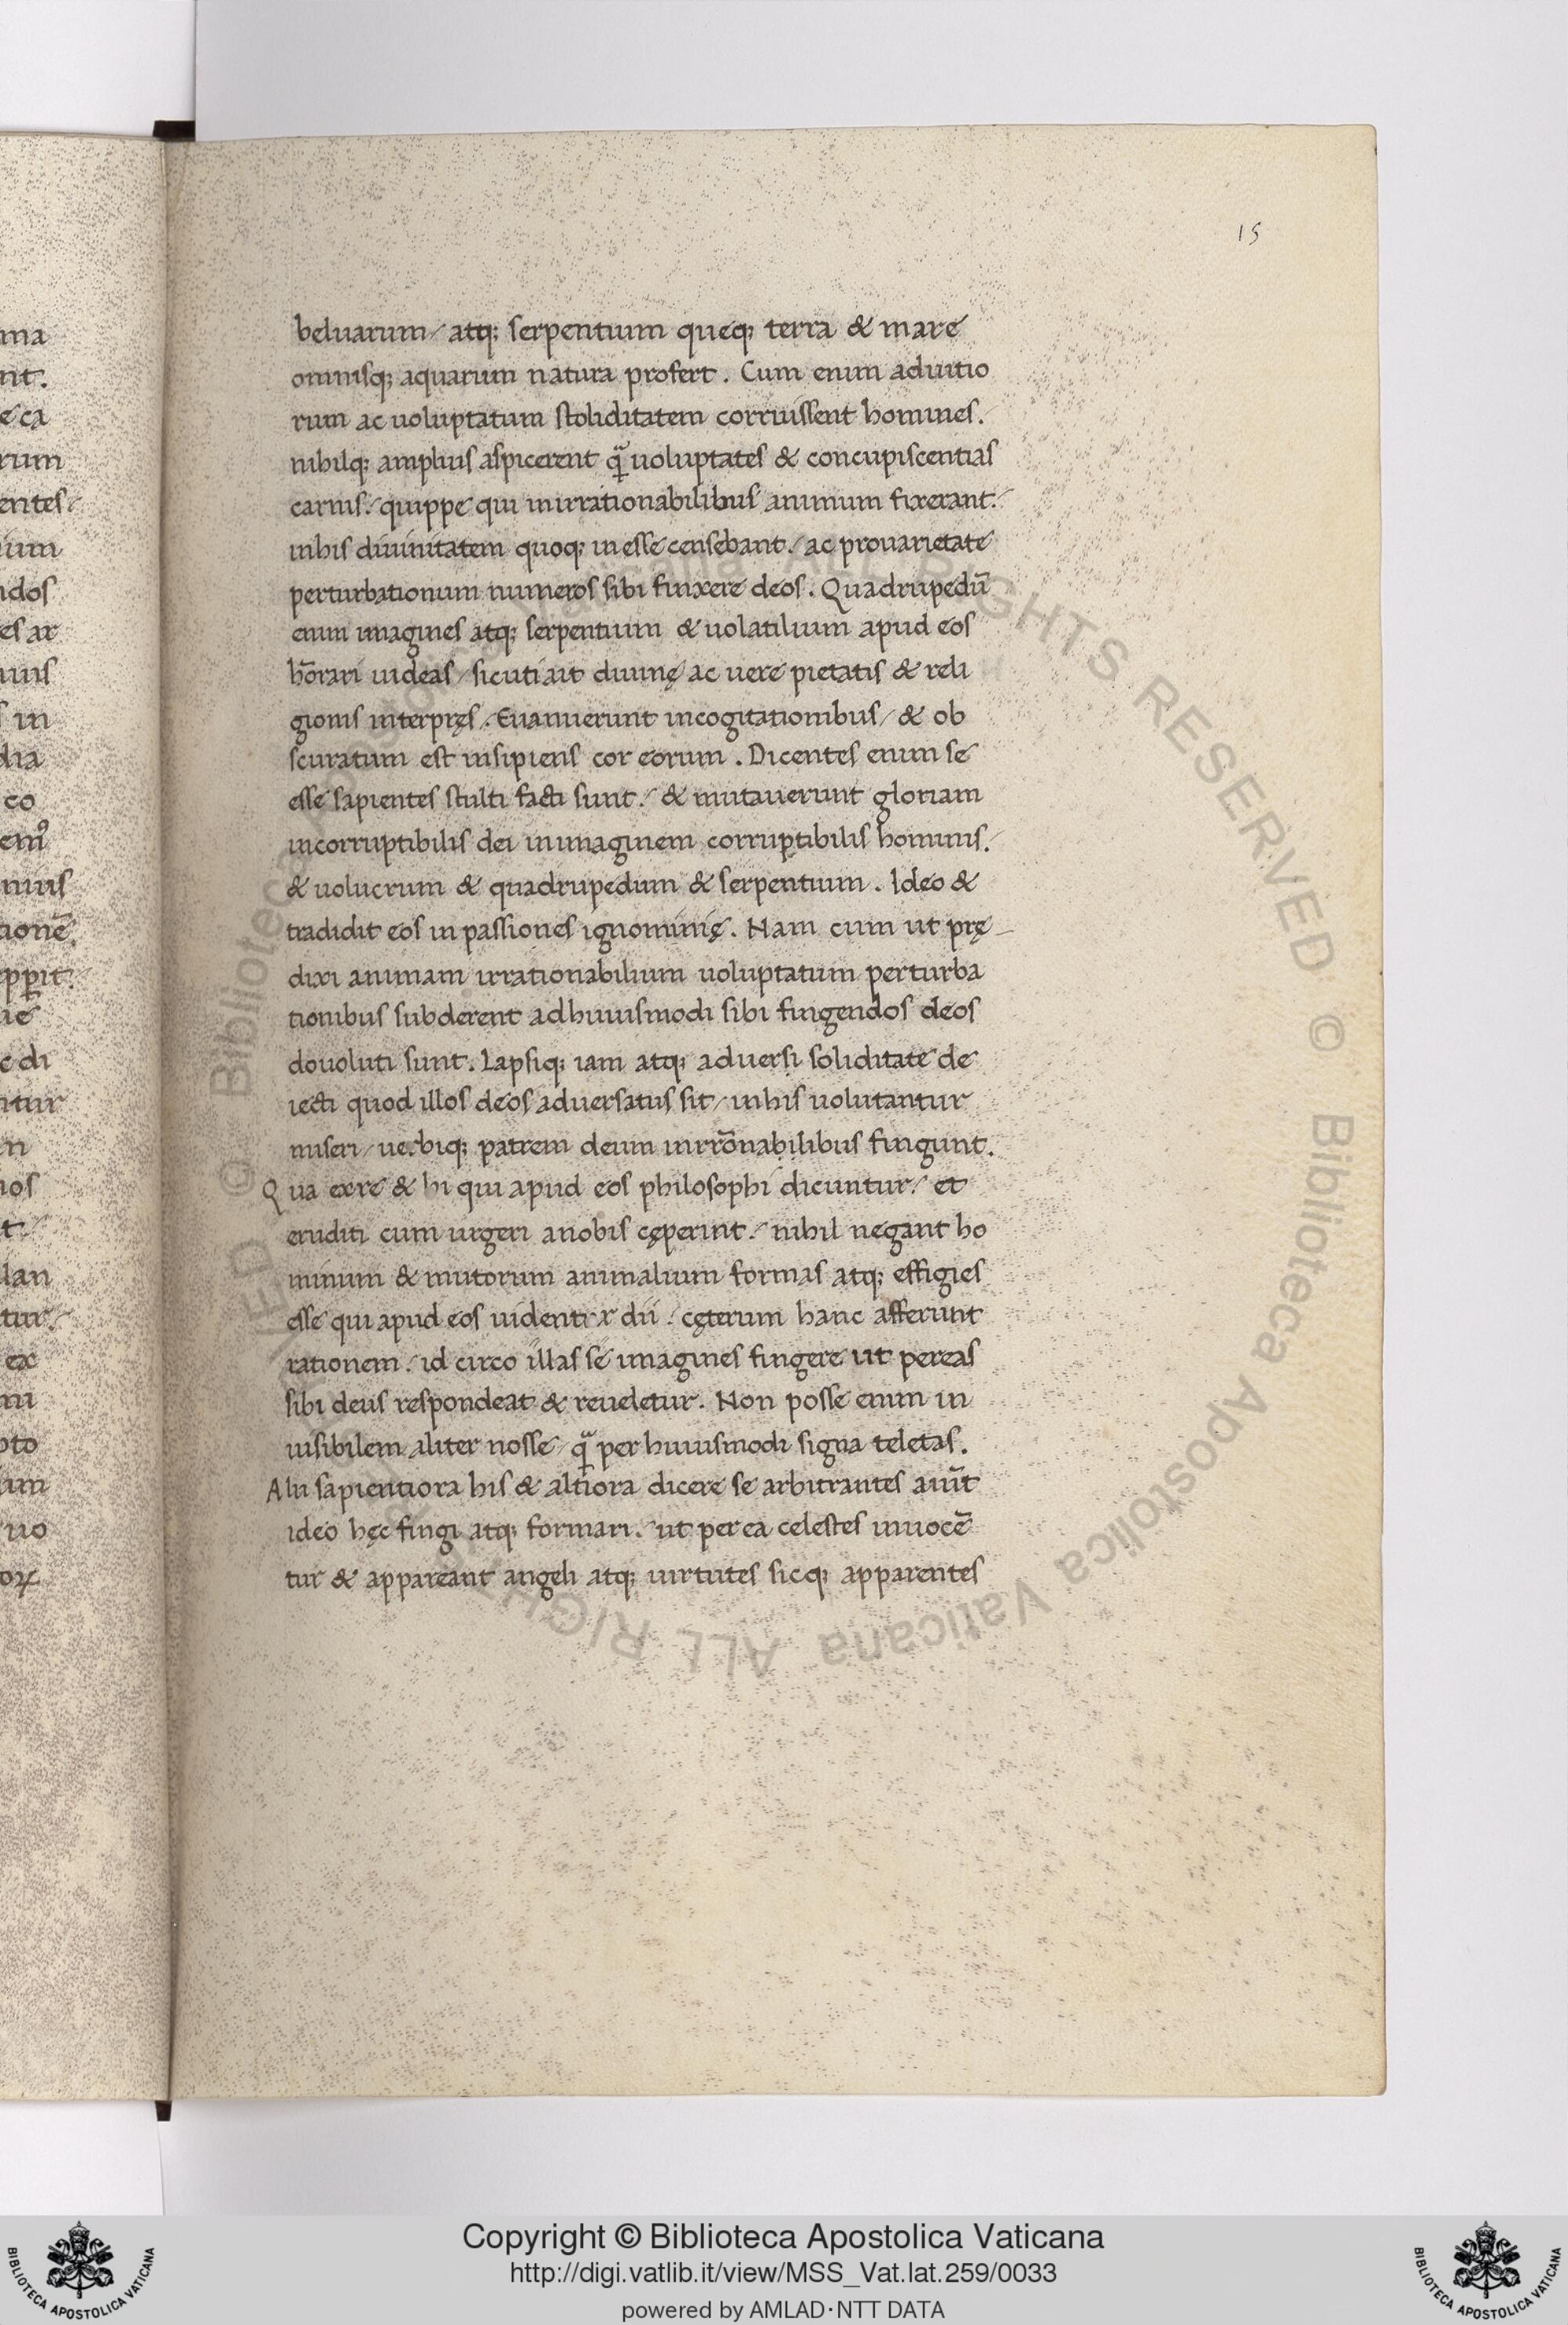 ma
nt.
e ca
rum
entes
ium
ndos
es ar
nus
s in
dia
co
em⁹
nius
tionē
pperit.
ue
e di
ntur
n
nos
t
lan
tur
ex
ni
pto
um
uo
oꝝ
15
beluarum / atq; serpentium queq; terra & mare
omnisq; aquarum natura profert . Cum enim aduitio
rum ac uoluptatum stoliditatem corruissent homines.
nihilq; amplius aspicerent q̃ uoluptates & concupiscentias
carnis. quippe qui inirrationabilibus animum fixerant.
inhis diuinitatem quoq; in esse censebant. ac prouarietate
perturbationum numeros sibi finxere deos . Quadrupedū
enim imagines atq; serpentium & uolatilium apud eos
hōrari uideas / sicuti ait diuinę ac uere pietatis & reli
gionis interpręs . Euanuerunt incogitationibus / & ob
scuratum est insipiens cor eorum . Dicentes enim se
esse sapientes stulti facti sunt. & mutauerunt gloriam
incorruptibilis dei inimaginem corruptibilis hominis.
& uolucrum & quadrupedum & serpentium . Ideo &
tradidit eos in passiones ignominię . Nam cum ut prę
dixi animam irrationabilium uoluptatum perturba
tionibus subderent adhuiusmodi sibi fingendos deos
douoluti sunt . Lapsiq; iam atq; aduersi soliditate de
iecti quod illos deos aduersatus sit / inhis uolutantur
miseri / uerbiq; patrem deum inirrōnabilibus fingunt.
Qua exre & hi qui apud eos philosophi dicuntur / et
eruditi cum urgeri anobis cęperint . nihil negant ho
minum & mutorum animalium formas atq; effigies
esse qui apud eos uidentur dii . cęterum hanc afferunt
rationem . id circo illas se imagines fingere ut pereas
sibi deus respondeat & reueletur . Non posse enim in
uisibilem aliter nosse / q̃ per huiusmodi signa teletas .
Alii sapientiora his & altiora dicere se arbitrantes aiūt
ideo hęc fingi atq; formari . ut per ea celestes inuocē
tur & appareant angeli atq; uirtutes sicq; apparentes
© Biblioteca Apostolica Vaticana ALL RIGHTS RESERVED © Biblioteca Apostolica Vaticana ALL RIGHTS RESERVED
Copyright © Biblioteca Apostolica Vaticana
http://digi.vatlib.it/view/MSS_Vat.lat.259/0033
powered by AMLAD·NTT DATA
BIBLIOTECA APOSTOLICA VATICANA
BIBLIOTECA APOSTOLICA VATICANA